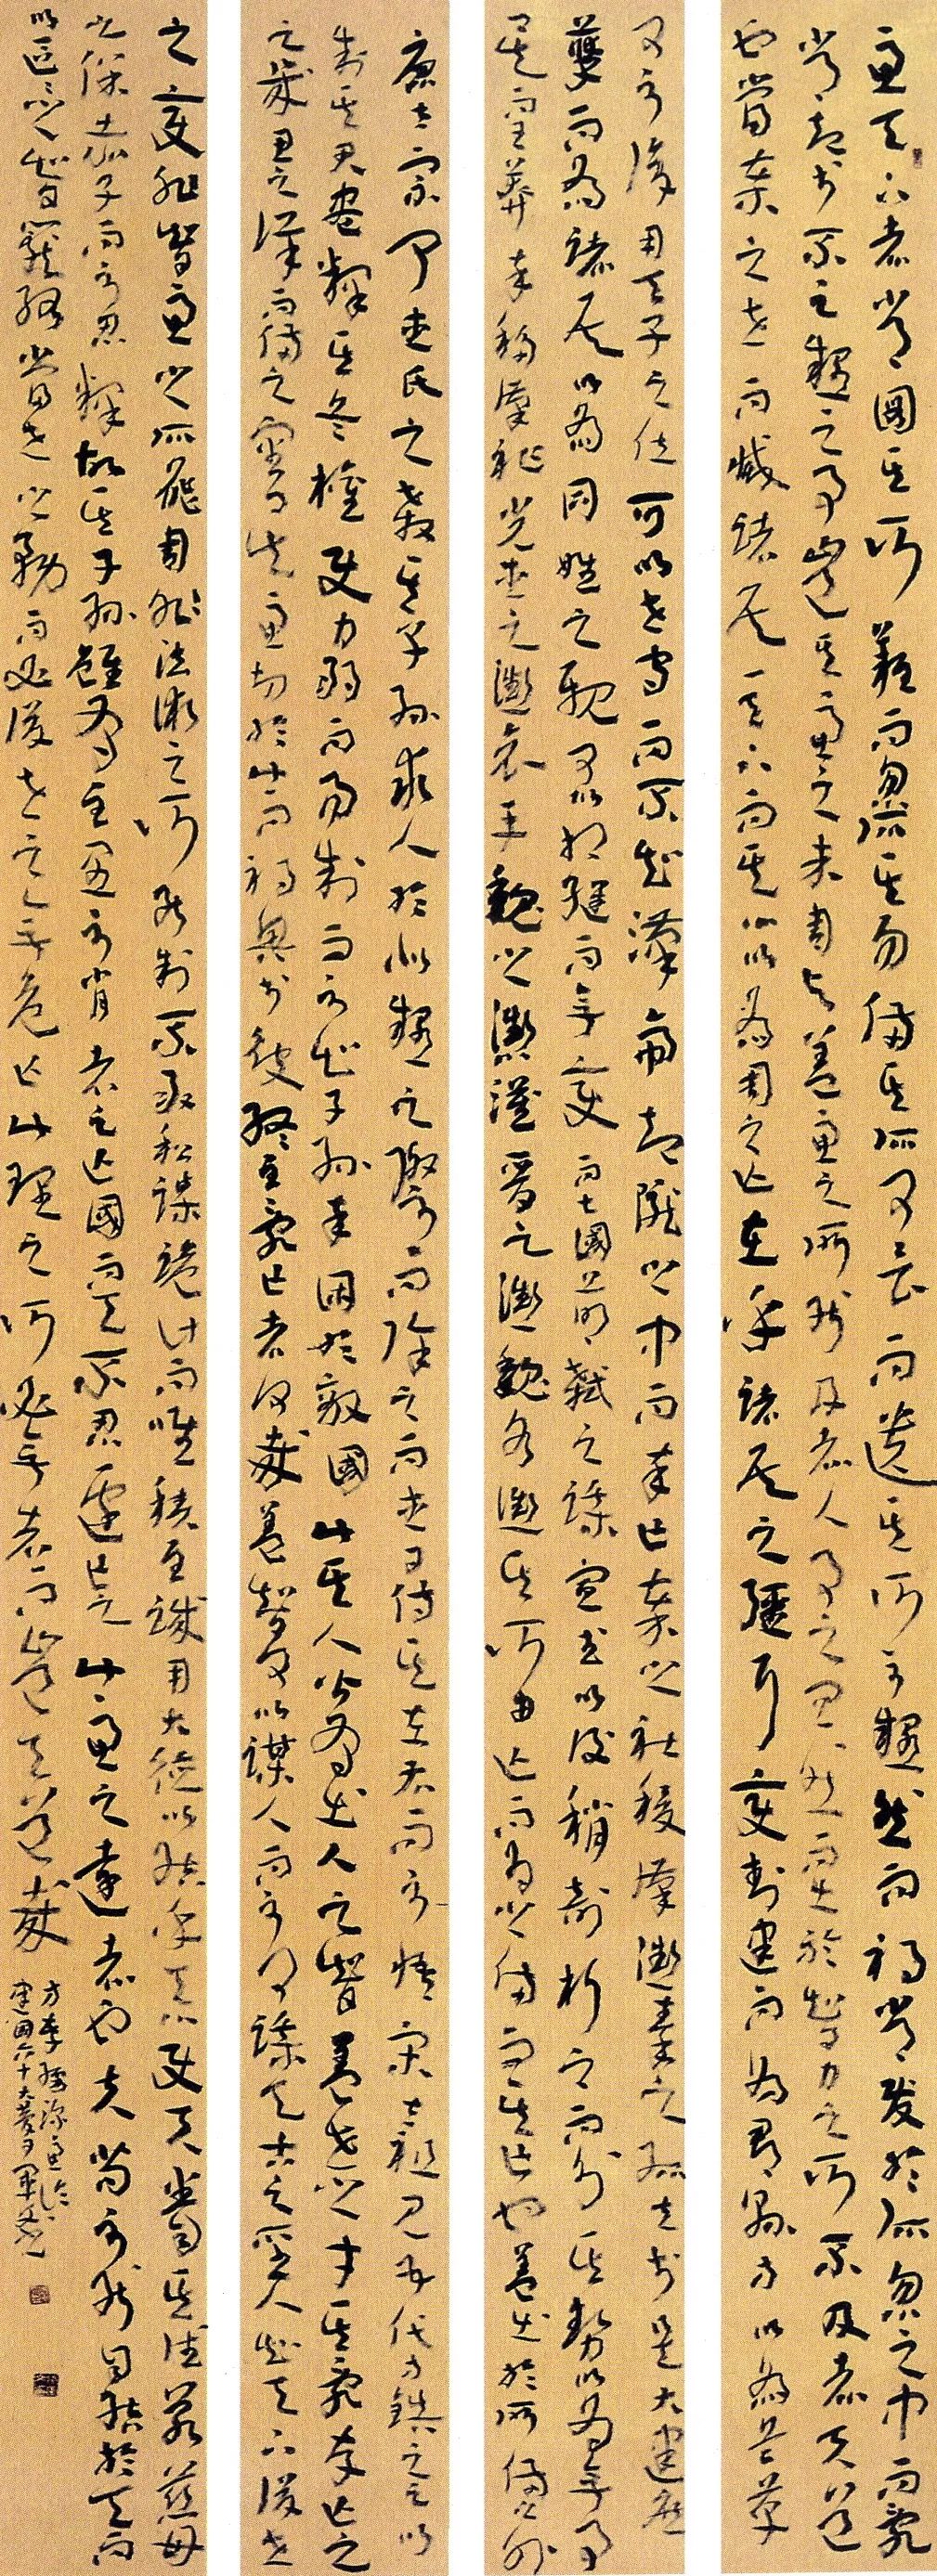 慮天下者常圖其所難而忽所其易備其所可畏而遺其所不疑然而禍常發於所忽之中而亂
常起於不疑之事豈其慮之未周與蓋慮之所能及者人事之宜然而出於智力之所不及者天道
也當秦之世而滅諸侯一天下而其心以為周之亡在乎諸侯之強耳變封建而為郡縣方以為兵革
可不復用天子之位可以世守而不知漢帝起隴畝之中而卒亡秦之社稷漢懲秦之孤立於是大建庶
孽而為諸侯以為同姓之親可以相繼而無變而七國萌弒之謀武宣以後稍剖析之而分其勢以為無事
矣而王莽卒移漢祚光武之懲哀平魏之懲漢晉之懲魏各懲其所由亡而為之備而其亡也蓋出於所備之外
唐太宗聞武氏之殺其子孫求人於疑似之際而除之而武日侍其左右而不悟宋太祖見五代方鎮之足以
制其君盡釋其兵權使力弱而易制而不知子孫卒困於敵國此其人皆有出人之智蓋世之才其於亂存亡之
之幾思之詳而備之審矣慮切於此而禍興於彼終至亂亡者何哉蓋智可以謀人而不可以謀天古之聖人知天下後世
之變非智慮之所能周非法術之所能制不敢私謀詭計而唯積至誠用大德以結乎天心使天眷其德若慈母
之保赤子而不忍釋故其子孫雖有至愚不肖者足亡國而天不忍遽亡之此慮之遠者也夫苟不能自結於天而
以區區之智籠絡當世之務而必後世之無危亡此理之所必無者而豈天道哉
方孝孺深慮論
建國六十大慶